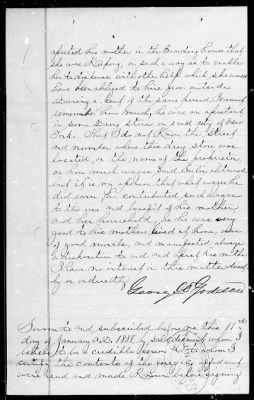 assisted his mother in the Boarding house that
she was Keeping, in such a way as to enable
her to dispense with other help which she would
have been obliged to hire from outside
During a part of the same period, I cannot
remember how much, he was an
in some Drug Store in said city of New
York. That I do not Know the Street
and number where this drug store was
located, or the name of the proprietor,
or how much wages said obtained
but it is my opinion that what wages he
did earn he contributed such wages
to the use and support of his mother
and her household, he he was very
good to his mother, kind at home, was
of good morals, and manifested always
a disposition to aid and assist his mother
I have no interest in this matter directly
or indirectly
George
Sworn to and subscribed before me this 11th
day of January A.D. 1888, by said deponent whom I
believe to be a credible person & to whom I
certify the contents of the foregoing affidavit
were read and made Known before signing